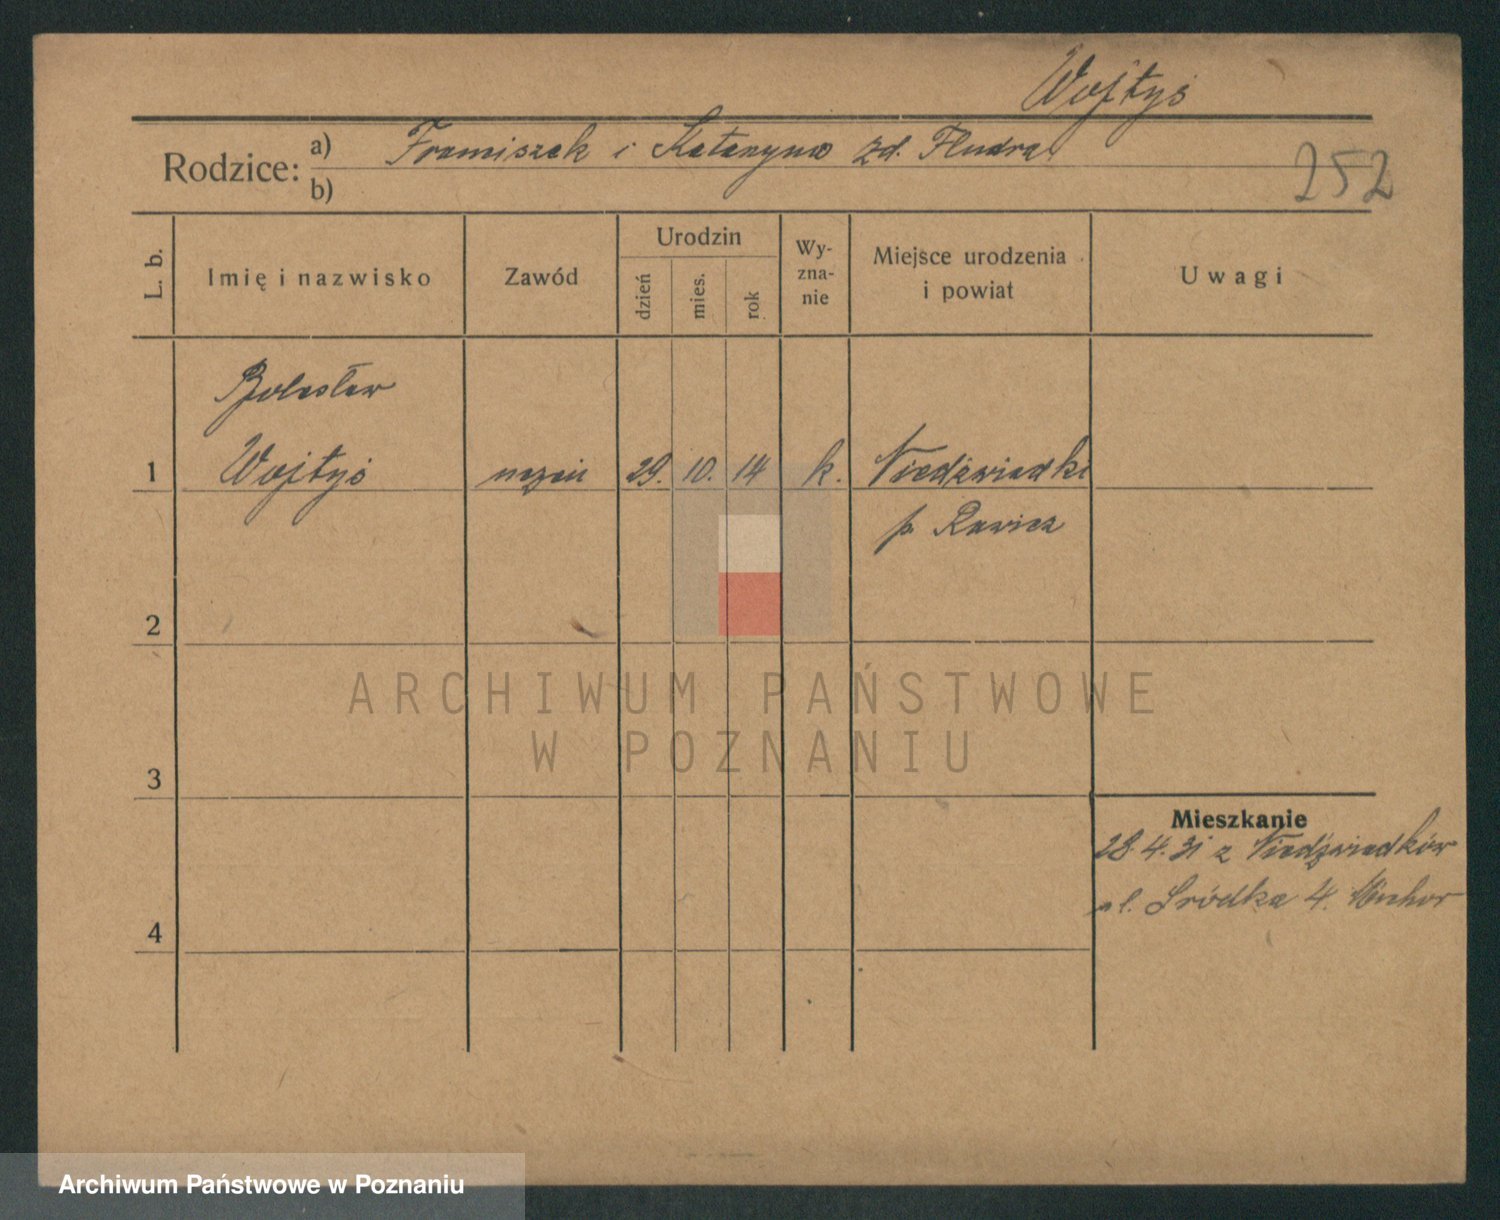 Wojtyś
Rodzice: a) Franciszek i Katarzyna zd. Fludra
b)
252
L. b.
Imię i nazwisko
Zawód
Urodzin
dzień
mies.
rok
Wy-
zna-
nie
Miejsce urodzenia
i powiat
Uwagi
Bolesław
1 Wojtyś uczeń 29. 10. 14 k. Niedźwiadki
p. Rawicz
2
3
4
Mieszkanie
28. 4. 31 z Niedźwiadków
ul. Śródka 4.
ARCHIWUM PAŃSTWOWE
W POZNANIU
Archiwum Państwowe w Poznaniu